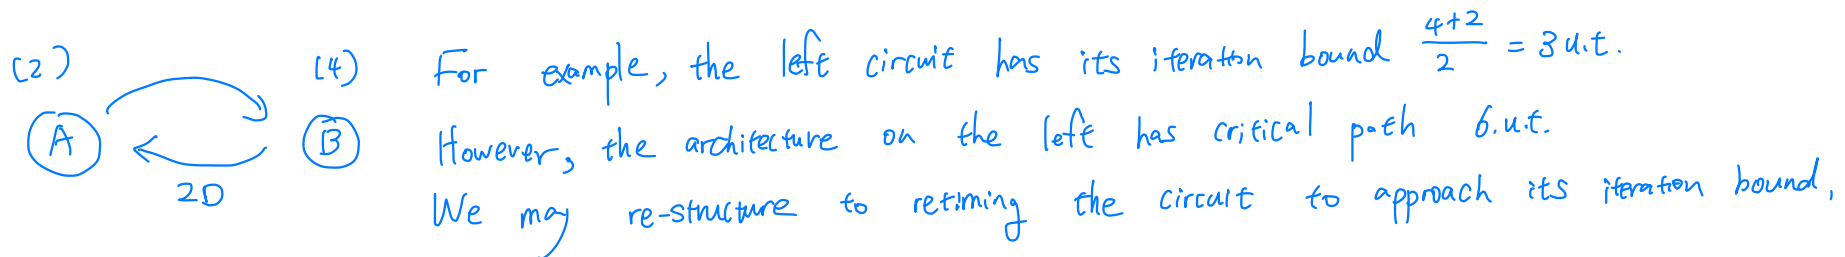 (2)
(4)
A
B
2D
For example, the left circuit has its iteration bound (4+2)/2 = 3 u.t.
However, the architecture on the left has critical path 6.u.t.
We may re-structure to retiming the circuit to approach its iteration bound,